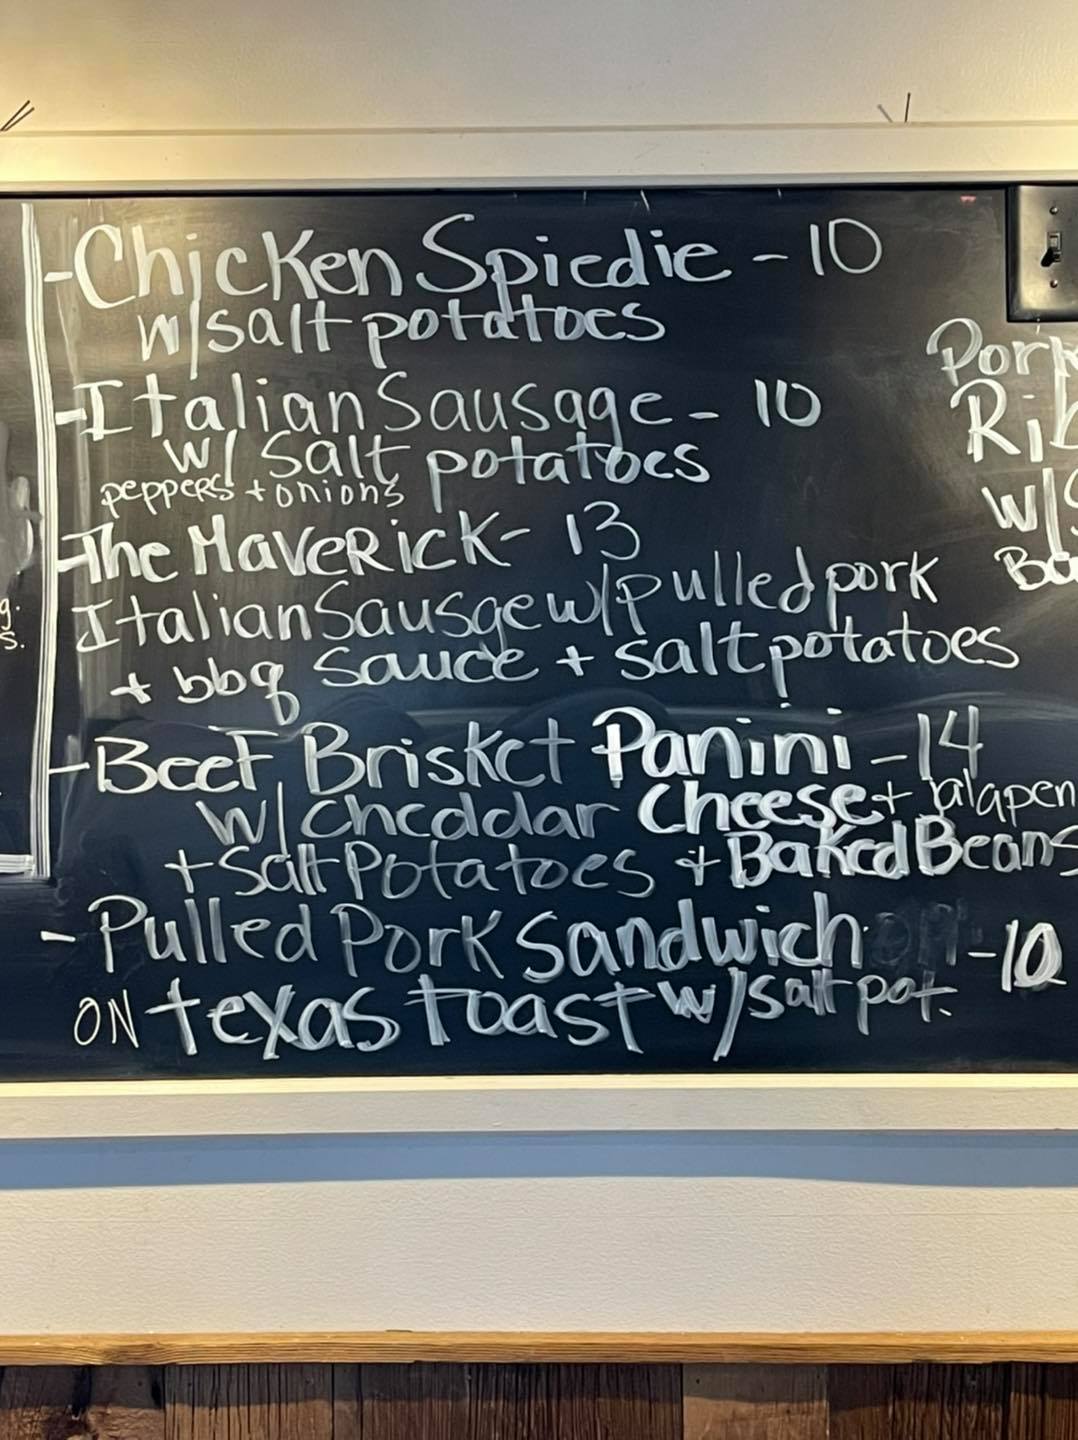 -Chicken Spiedie - 10
w/salt potatoes
-Italian Sausage - 10
w/ Salt potatoes
peppers + onions
-The Maverick- 13
Italian Sausge w/pulled pork
+ bbq sauce + salt potatoes
-Beef Brisket Panini -14
w/cheddar cheese + jalapen
+ Salt Potatoes + Baked Beans
- Pulled Pork Sandwich -10
ON texas toast w/salt pot.
Pork
Rib
w/S
Ba
g.
s.